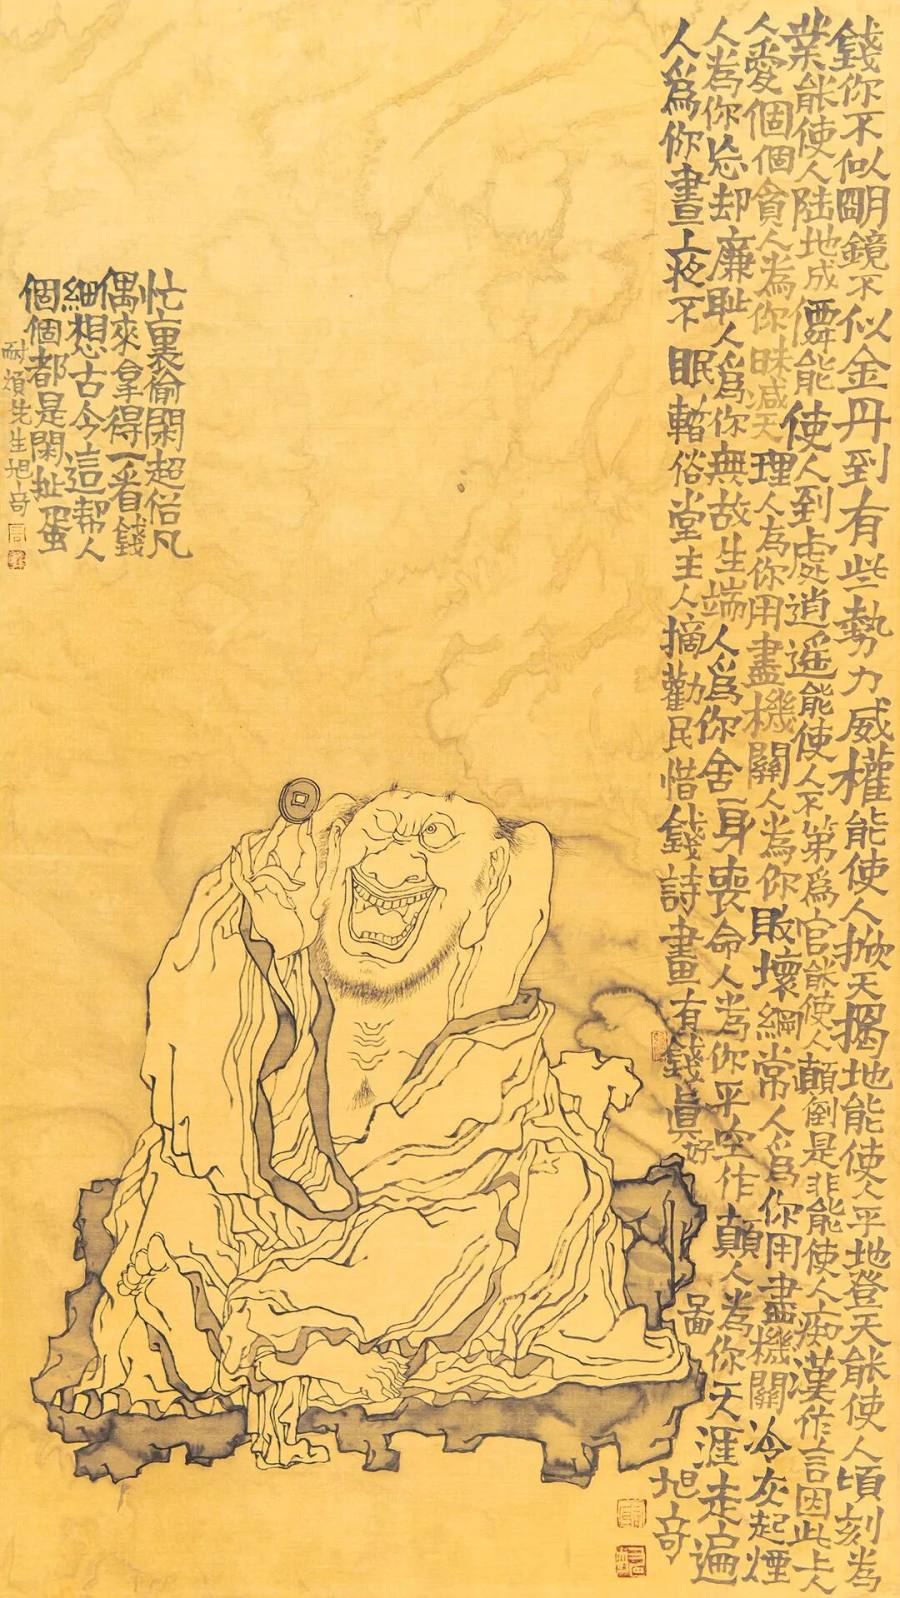 錢你不似明鏡不似金丹到有些勢力威權能使人掀天揭地能使人平地登天能使人頃刻為
業能使人陸地成僊能使人到處逍遥能使人不第為官能使人顛倒是非能使人痴漢作言因此上人
人愛個個貪人為你昧減天理人為你用盡機關人為你敗壞綱常人為你用盡機關冷灰起煙
人為你忘却廉恥人爲你無故生端人爲你舍身喪命人為你平空作顛人為你天涯走遍
人爲你晝夜不眠俗堂主人摘勸民惜錢詩畫有錢真好圖旭奇
忙裏偷閑超俗凡
偶來拿得一看錢
細想古今這幫人
個個都是閑扯蛋
耐煩先生旭奇